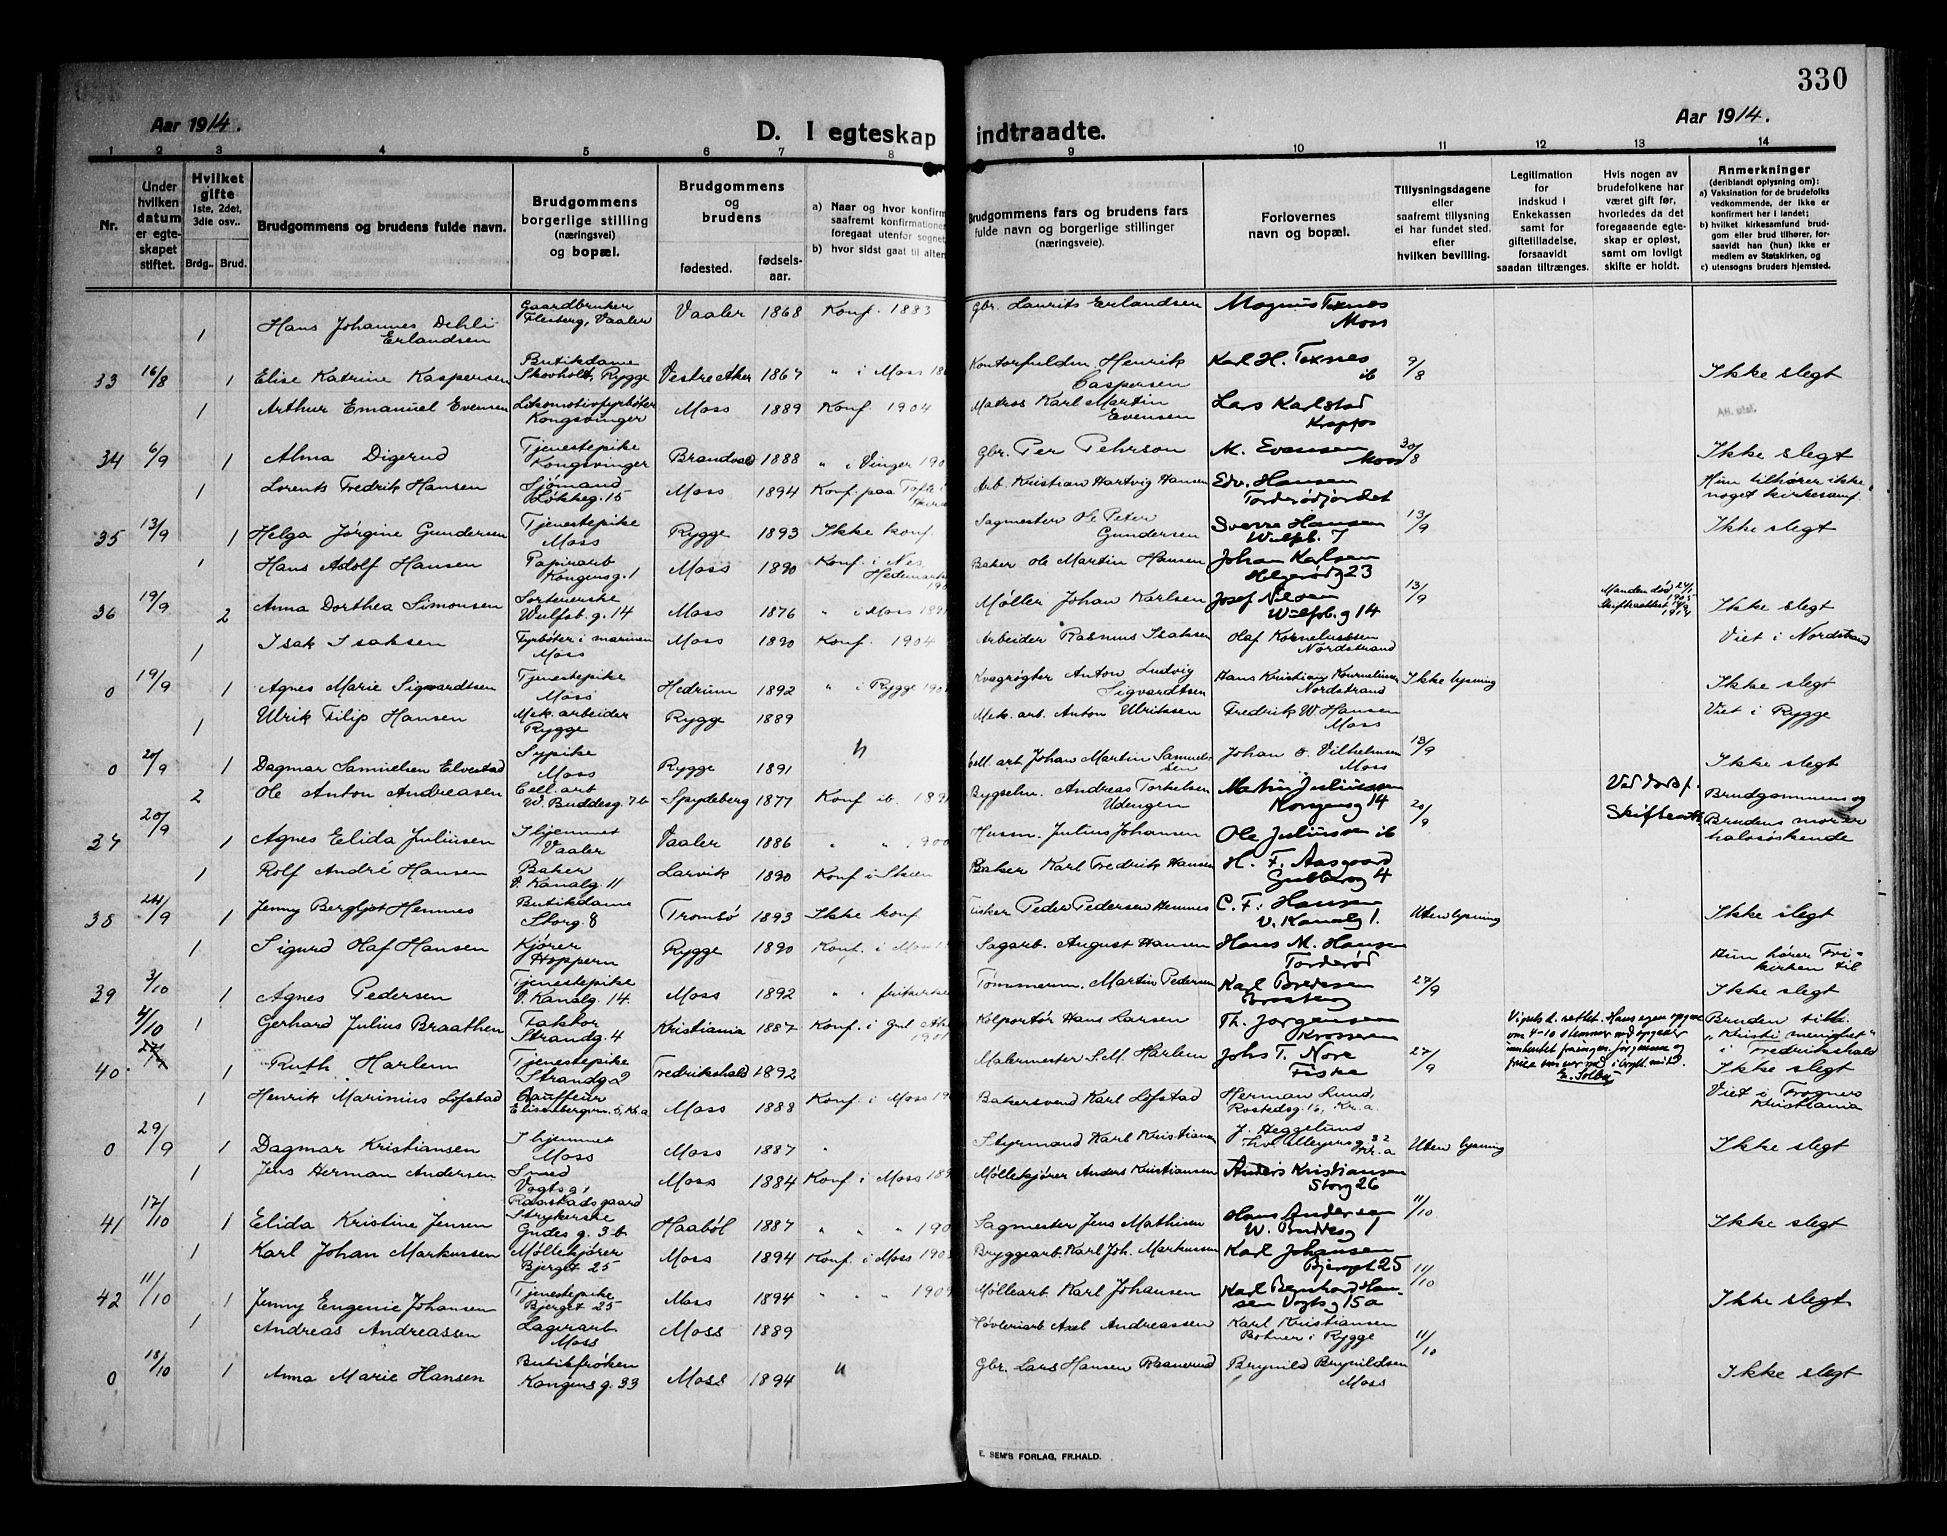 330
Aar 1914.
Aar 1914.
D. I egteskap indtraadte.
1 2 3 4 5 6 7 8 9 10 11 12 13 14
Nr.
Under hvilken datum er egteskapet stiftet.
Hvilket gifte 1ste, 2det, 3die osv.
Brdg. Brud.
Brudgommens og brudens fulde navn.
Brudgommens borgerlige stilling (næringsvei) og bopæl.
Brudgommens og brudens
fødested.
fødselsaar.
a) Naar og hvor konfirm
saafremt konfirmationen
foregaat utenfor sognet
b) hvor sidst gaat til alters
Brudgommens fars og brudens fars fulde navn og borgerlige stillinger (næringsveie).
Forlovernes navn og bopæl.
Tillysningsdagene eller saafremt tillysning ei har fundet sted. efter hvilken bevilling.
Legitimation for indskud i Enkekassen samt for giftetilladelse, forsaavidt saadan tiltrænges.
Hvis nogen av brudefolkene har været gift før, hvorledes da det foregaaende egteskap er opløst, samt om lovlig skifte er holdt.
Anmerkninger (deriblandt oplysning om): a) Vaksination for de brudefolks vedkommende, der ikke er konfirmert her i landet; b) hvilket kirkesamfund brudgom eller brud tilhører, forsaavidt han (hun) ikke er medlem av Statskirken, og c) utensogns bruders hjemsted.
1 Hans Johannes Dehli Erlandsen Gaardbruker Fleiberg, Vaaler Vaaler 1868 Konf. 1883 Gbr. Laurits Erlandsen Magnus Texnes Moss
33 16/8 1 Elise Katrine Kaspersen Butikdame Skovholt, Rygge Vestre Aker 1867 " i Moss Henrik Caspersen Karl H. Texnes ib 9/8 Ikke slegt
1 Arthur Emanuel Evensen Lokomotivfyrbøter Kongsvinger Moss 1889 Konf. 1904 Matros Karl Martin Evensen Lars Karlstad
34 6/9 1 Alma Digerud Tjenestepike Kongsvinger Brandvold 1888 " i Vinger Gbr. Per Pehrson M. Evensen Moss 30/8 Ikke slegt
1 Lorents Fredrik Hansen Sjømand Løkkeg. 15 Moss 1894 Konf. paa Tofte i Arb. Kristian Hartvig Hansen Edv. Hansen Torderødjordet Hun tilhører ikke noget kirkesamf.
35 13/9 1 Helga Jørgine Gundersen Tjenestepike Moss Rygge 1893 Ikke konf. Sagmester Ole Peter Gundersen Sverre Hansen Wulfsb. 7 13/9 Ikke slegt
1 Hans Adolf Hansen Papirarb Kongensg. 1 Moss 1890 Konf. i Nes, Hedemarken Baker Ole Martin Hansen Johan Karlsen Helgerødg 23
36 19/9 2 Anna Dorthea Simonsen Sorterierske Wulfsb. g. 14 Moss 1876 " i Moss Møller Johan Karlsen Josef Nilsen Wulfsb. g 14 13/9 Manden død Skifteattest Ikke slegt
1 Isak Isaksen Fyrbøter i marinen Moss Moss 1890 Konf. 1904 Arbeider Rasmus Isaksen Olaf Korneliussen Nordstrand Viet i Nordstrand
0 19/9 1 Agnes Marie Sigvardtsen Tjenestepike Moss Hedrum 1892 " i Rygge Kvægrøgter Anton Ludvig Sigvardtsen Hans Kristian Korneliussen Nordstrand Ikke lysning Ikke slegt
1 Ulrik Filip Hansen Mek. arbeider Rygge Rygge 1889 Mek. arb. Anton Ulriksen Fredrik W. Hansen Moss Viet i Rygge
0 20/9 1 Dagmar Samuelsen Elvestad Sypike Moss Rygge 1891 " Cell. arb Johan Martin Samuelsen Johan O. Vilhelmsen Moss 13/9 Ikke slegt
2 Ole Anton Andreasen Cell. arb W. Buddesg. 7b Spydeberg 1877 Konf. ib. Bygselm. Andreas Torkelsen Udengen Martin Juliussen Kongensg 14 Ved død Brudgommens og
37 20/9 1 Agnes Elida Juliusen I hjemmet Vaaler Vaaler 1886 " " 1900 Husm. Julius Johansen Ole Juliussen ib 20/9 Skifteatt. Brudens mor er halvsøskende
1 Rolf André Hansen Baker V. Kanalg. 11 Larvik 1890 Konf i Skien Baker Karl Fredrik Hansen H. F. Aasgaard
38 24/9 1 Jenny Bergljot Hemnes Butikdame Storg. 8 Tromsø 1893 Ikke konf Fisker Peder Pedersen Hemnes C. F. Hansen V. Kanalg 1. Uten lysning Ikke slegt
1 Sigurd Olaf Hansen Kjører Hoppern Rygge 1890 Konf. i Moss Sagarb. August Hansen Hans M. Hansen Torderød Hun hører Frikirken til
39 3/10 1 Agnes Pedersen Tjenestepike V. Kanalg. 14. Moss 1892 " " frikirke Tømmerm. Martin Pedersen Karl Bredesen 27/9 Ikke slegt
4/10 1 Gerhard Julius Braathen Faktor Strandg. 4 Kristiania 1887 Konf. i Kolportør Hans Larsen Th. Jørgensen Krosseren Bruden tilh. "Kristi menighet" i Fredrikshald
40. 1 Ruth Harlem Tjenestepike Strandg 2 Fredrikshald 1892 Malermester Harlem Johs T. Nore Fiske 27/9 E. Solby Ikke slegt
1 Henrik Marinius Løfstad Chauffeur Elisenbergvn. 5, Kr.a Moss 1888 Konf. i Moss Bakersvend Karl Løfstad Herman Lund, Rostedsg. 16, Kr.a. Viet i Frogner Kristiania
0 29/9 1 Dagmar Kristiansen I hjemmet Moss Moss 1887 " Styrmand Karl Kristiansen J. Heggelund Thv. Meyersg. 32 Kr. a Uten lysning Ikke slegt
1 Jens Herman Andersen Smed Vogtsg. Raastadsgaard Moss 1884 Konf. i Moss Møllekjører Anders Kristiansen Anders Kristiansen Storg 26
41 17/10 1 Elida Kristine Jensen Strykerske Gudes g. 3 b. Haabøl 1887 " " " Sagmester Jens Mathisen Hans Andersen W. Buddesg 1 11/10 Ikke slegt
1 Karl Johan Markussen Møllekjører Bjerget 25 Moss 1894 Konf. i Moss Bryggearb. Karl Joh. Markussen Karl Johansen Bjerget 25
42 11/10 1 Jenny Eugenie Johansen Tjenestepike Bjerget 25 Moss 1894 " " 1909 Møllearb. Karl Johansen Karl Bernhard Hansen Vogtsg 15 a 11/10 Ikke slegt
1 Andreas Andreassen Lagerarb. Moss Moss 1889 Høvleriarb. Axel Andreassen Karl Kristiansen Bohner i Rygge
0 18/10 1 Anna Marie Hansen Butikfrøken Kongensg. 33 Moss 1894 " Gbr. Lars Hansen Raanerud Brynild Brynildsen Moss 11/10 Ikke slegt
E. SEM'S FORLAG, FR.HALD.